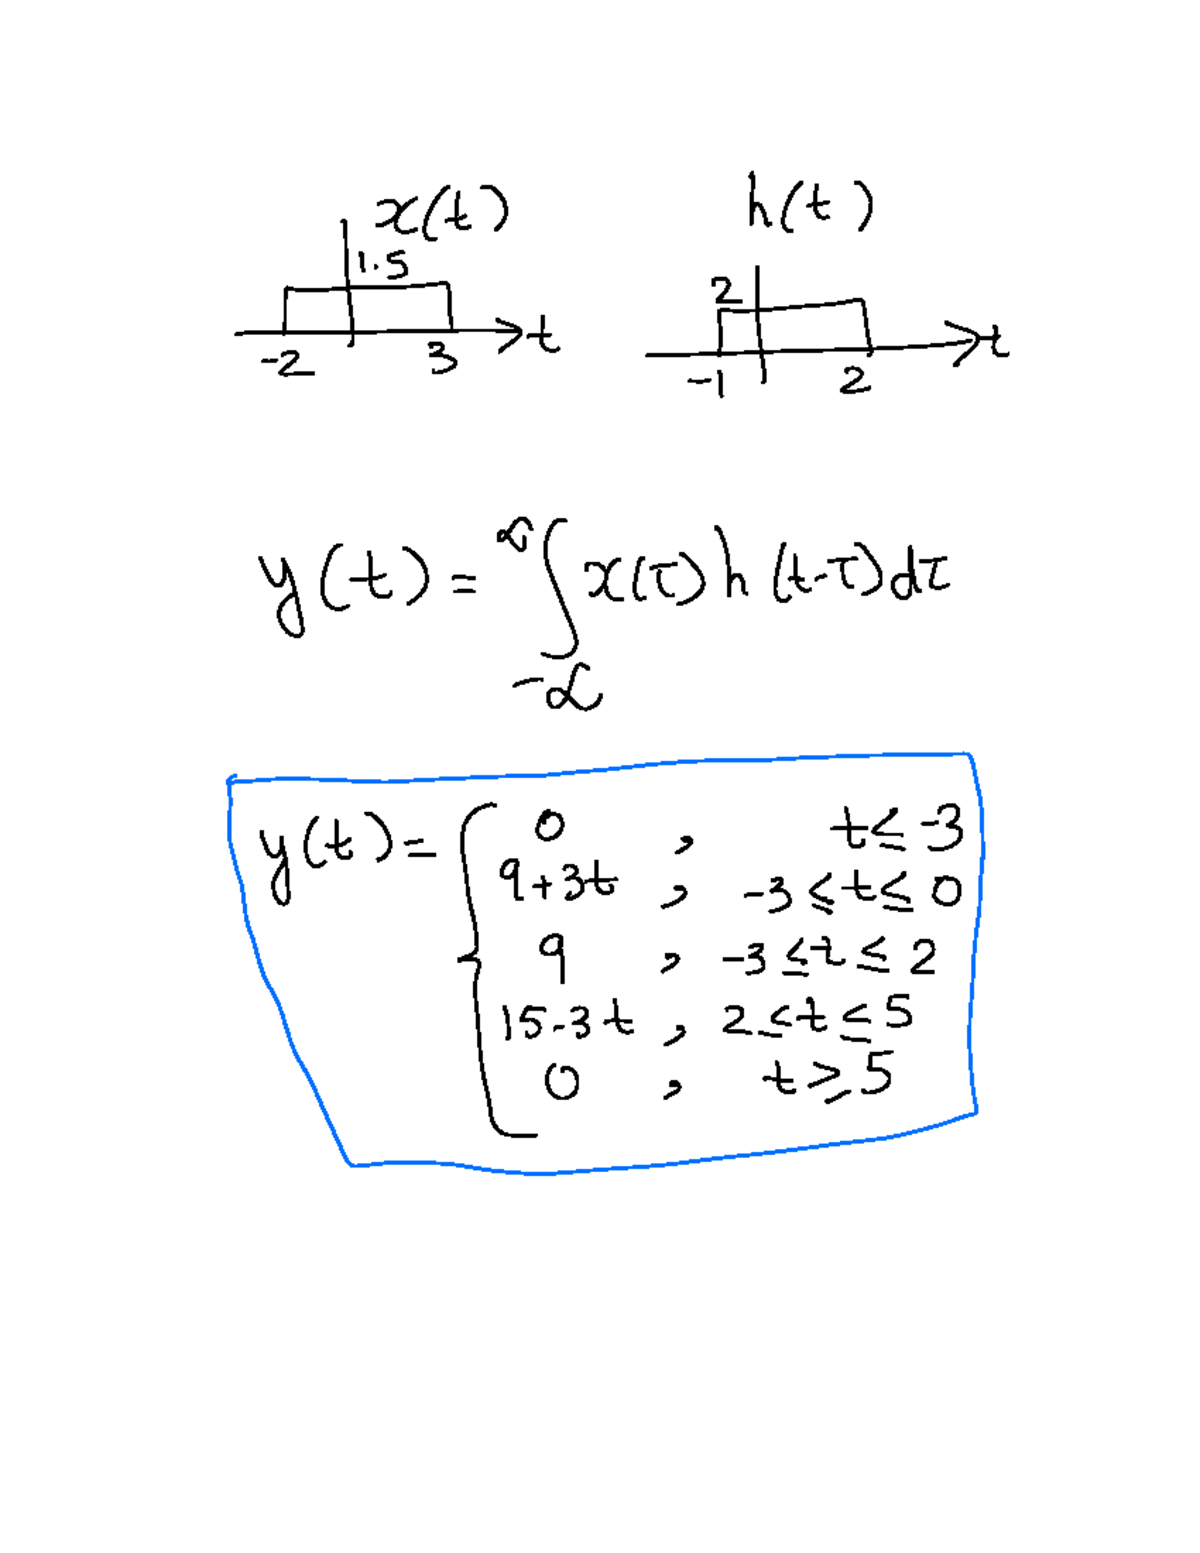 x(t)
h(t)
1.5
2
-2 3 t
-1 2 t
y(t) = ∫ x(τ) h (t-τ) dτ
∞
-∞
y(t) = { 0 , t ≤ -3
9+3t , -3 ≤ t ≤ 0
9 , -3 ≤ t ≤ 2
15-3t , 2 ≤ t ≤ 5
0 , t ≥ 5